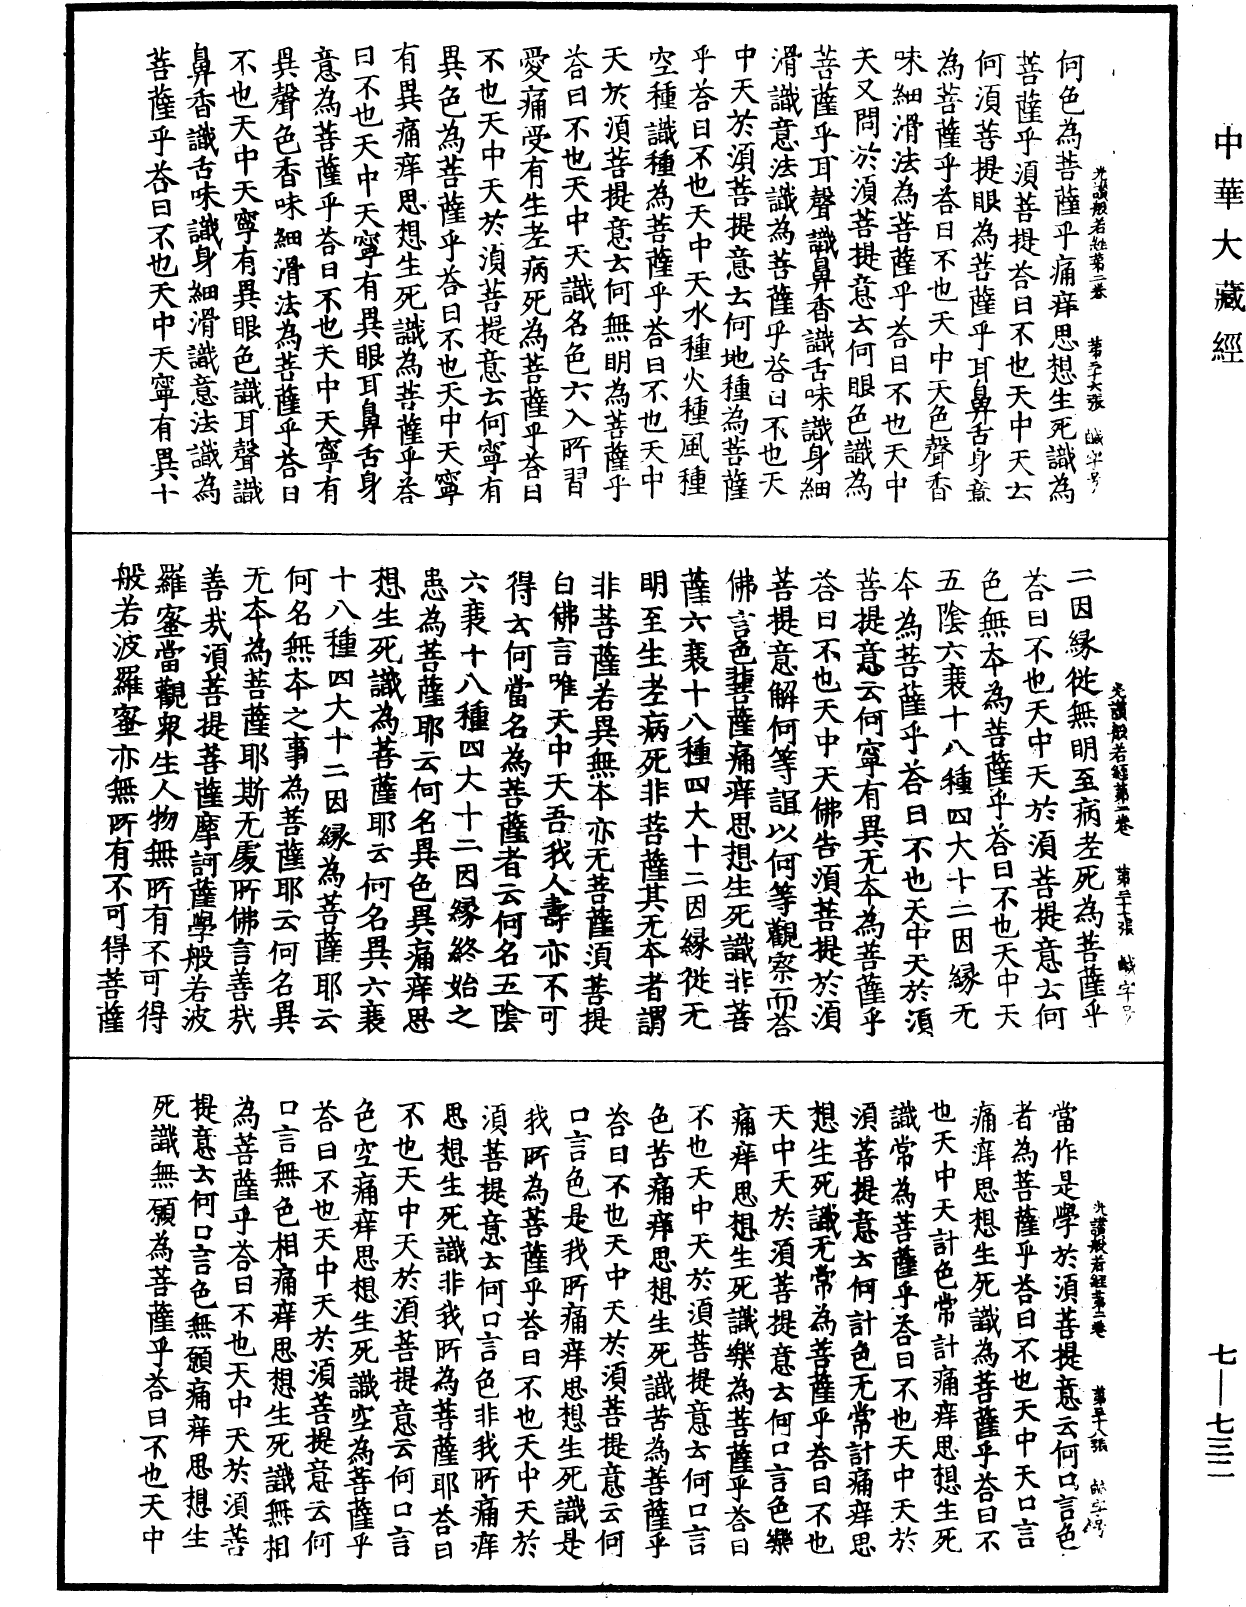 中華大藏經
光讚般若經第二卷　第三十六張　鹹字号
何色為菩薩乎痛痒思想生死識為
菩薩乎須菩提荅曰不也天中天云
何須菩提眼為菩薩乎耳鼻舌身意
為菩薩乎荅曰不也天中天色聲香
味細滑法為菩薩乎荅曰不也天中
天又問於須菩提意云何眼色識為
菩薩乎耳聲識鼻香識舌味識身細
滑識意法識為菩薩乎荅曰不也天
中天於須菩提意云何地種為菩薩
乎荅曰不也天中天水種火種風種
空種識種為菩薩乎荅曰不也天中
天於須菩提意云何無明為菩薩乎
荅曰不也天中天識名色六入所習
愛痛受有生老病死為菩薩乎荅曰
不也天中天於須菩提意云何寧有
異色為菩薩乎荅曰不也天中天寧
有異痛痒思想生死識為菩薩乎荅
曰不也天中天寧有異眼耳鼻舌身
意為菩薩乎荅曰不也天中天寧有
異聲色香味細滑法為菩薩乎荅曰
不也天中天寧有異眼色識耳聲識
鼻香識舌味識身細滑識意法識為
菩薩乎荅曰不也天中天寧有異十
光讚般若經第二卷　第三十七張　鹹字号
二因緣從無明至病老死為菩薩乎
荅曰不也天中天於須菩提意云何
色無本為菩薩乎荅曰不也天中天
五陰六衰十八種四大十二因緣无
本為菩薩乎荅曰不也天中天於須
菩提意云何寧有異无本為菩薩乎
荅曰不也天中天佛告須菩提於須
菩提意解何等誼以何等觀察而荅
佛言色非菩薩痛痒思想生死識非菩
薩六衰十八種四大十二因緣從无
明至生老病死非菩薩其无本者謂
非菩薩若異無本亦无菩薩須菩提
白佛言唯天中天吾我人壽亦不可
得云何當名為菩薩者云何名五陰
六衰十八種四大十二因緣終始之
患為菩薩耶云何名異色異痛痒思
想生死識為菩薩耶云何名異六衰
十八種四大十二因緣為菩薩耶云
何名無本之事為菩薩耶云何名異
无本為菩薩耶斯无處所佛言善哉
善哉須菩提菩薩摩訶薩學般若波
羅蜜當觀衆生人物無所有不可得
般若波羅蜜亦無所有不可得菩薩
光讚般若經第二卷　第三十八張　鹹字号
當作是學於須菩提意云何口言色
者為菩薩乎荅曰不也天中天口言
痛痒思想生死識為菩薩乎荅曰不
也天中天計色常計痛痒思想生死
識常為菩薩乎荅曰不也天中天於
須菩提意云何計色无常計痛痒思
想生死識无常為菩薩乎荅曰不也
天中天於須菩提意云何口言色樂
痛痒思想生死識樂為菩薩乎荅曰
不也天中天於須菩提意云何口言
色苦痛痒思想生死識苦為菩薩乎
荅曰不也天中天於須菩提意云何
口言色是我所痛痒思想生死識是
我所為菩薩乎荅曰不也天中天於
須菩提意云何口言色非我所痛痒
思想生死識非我所為菩薩耶荅曰
不也天中天於須菩提意云何口言
色空痛痒思想生死識空為菩薩乎
荅曰不也天中天於須菩提意云何
口言無色相痛痒思想生死識無相
為菩薩乎荅曰不也天中天於須菩
提意云何口言色無願痛痒思想生
死識無願為菩薩乎荅曰不也天中
七—七三二